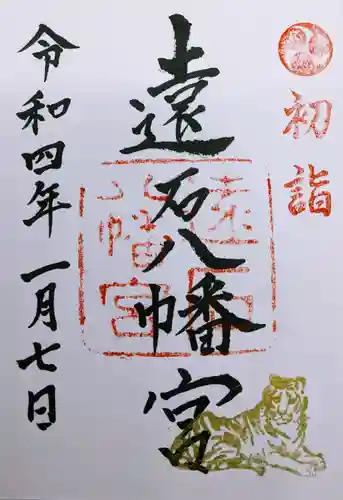 初詣
遠石八幡宮
遠石八幡宮
令和四年一月七日